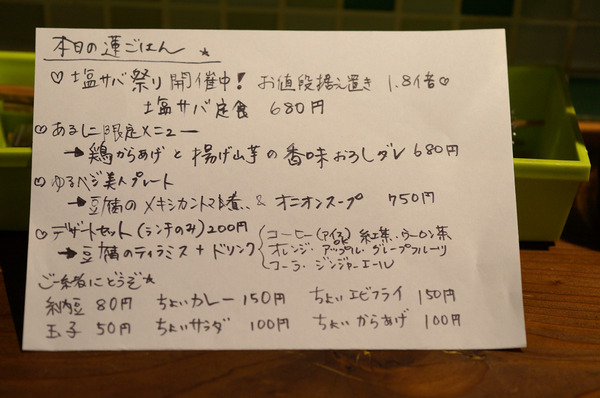 本日の蓮ごはん ★
♡塩サバ祭り開催中! お値段据え置き 1.8倍♡
塩サバ定食 680円
♡あるしこ限定メニュー
→鶏からあげと揚げ山芋の香味おろしダレ 680円
♡ゆるベジ美人プレート
→豆腐のメキシカントマト煮 & オニオンスープ 750円
♡デザートセット(ランチのみ)200円
→豆腐のティラミス+ドリンク
コーヒー(アイス) 紅茶・ウーロン茶
オレンジ・アップル・グレープフルーツ
コーラ・ジンジャーエール
ご一緒にどうぞ★
納豆 80円 ちょいカレー 150円 ちょいエビフライ 150円
玉子 50円 ちょいサラダ 100円 ちょいからあげ 100円